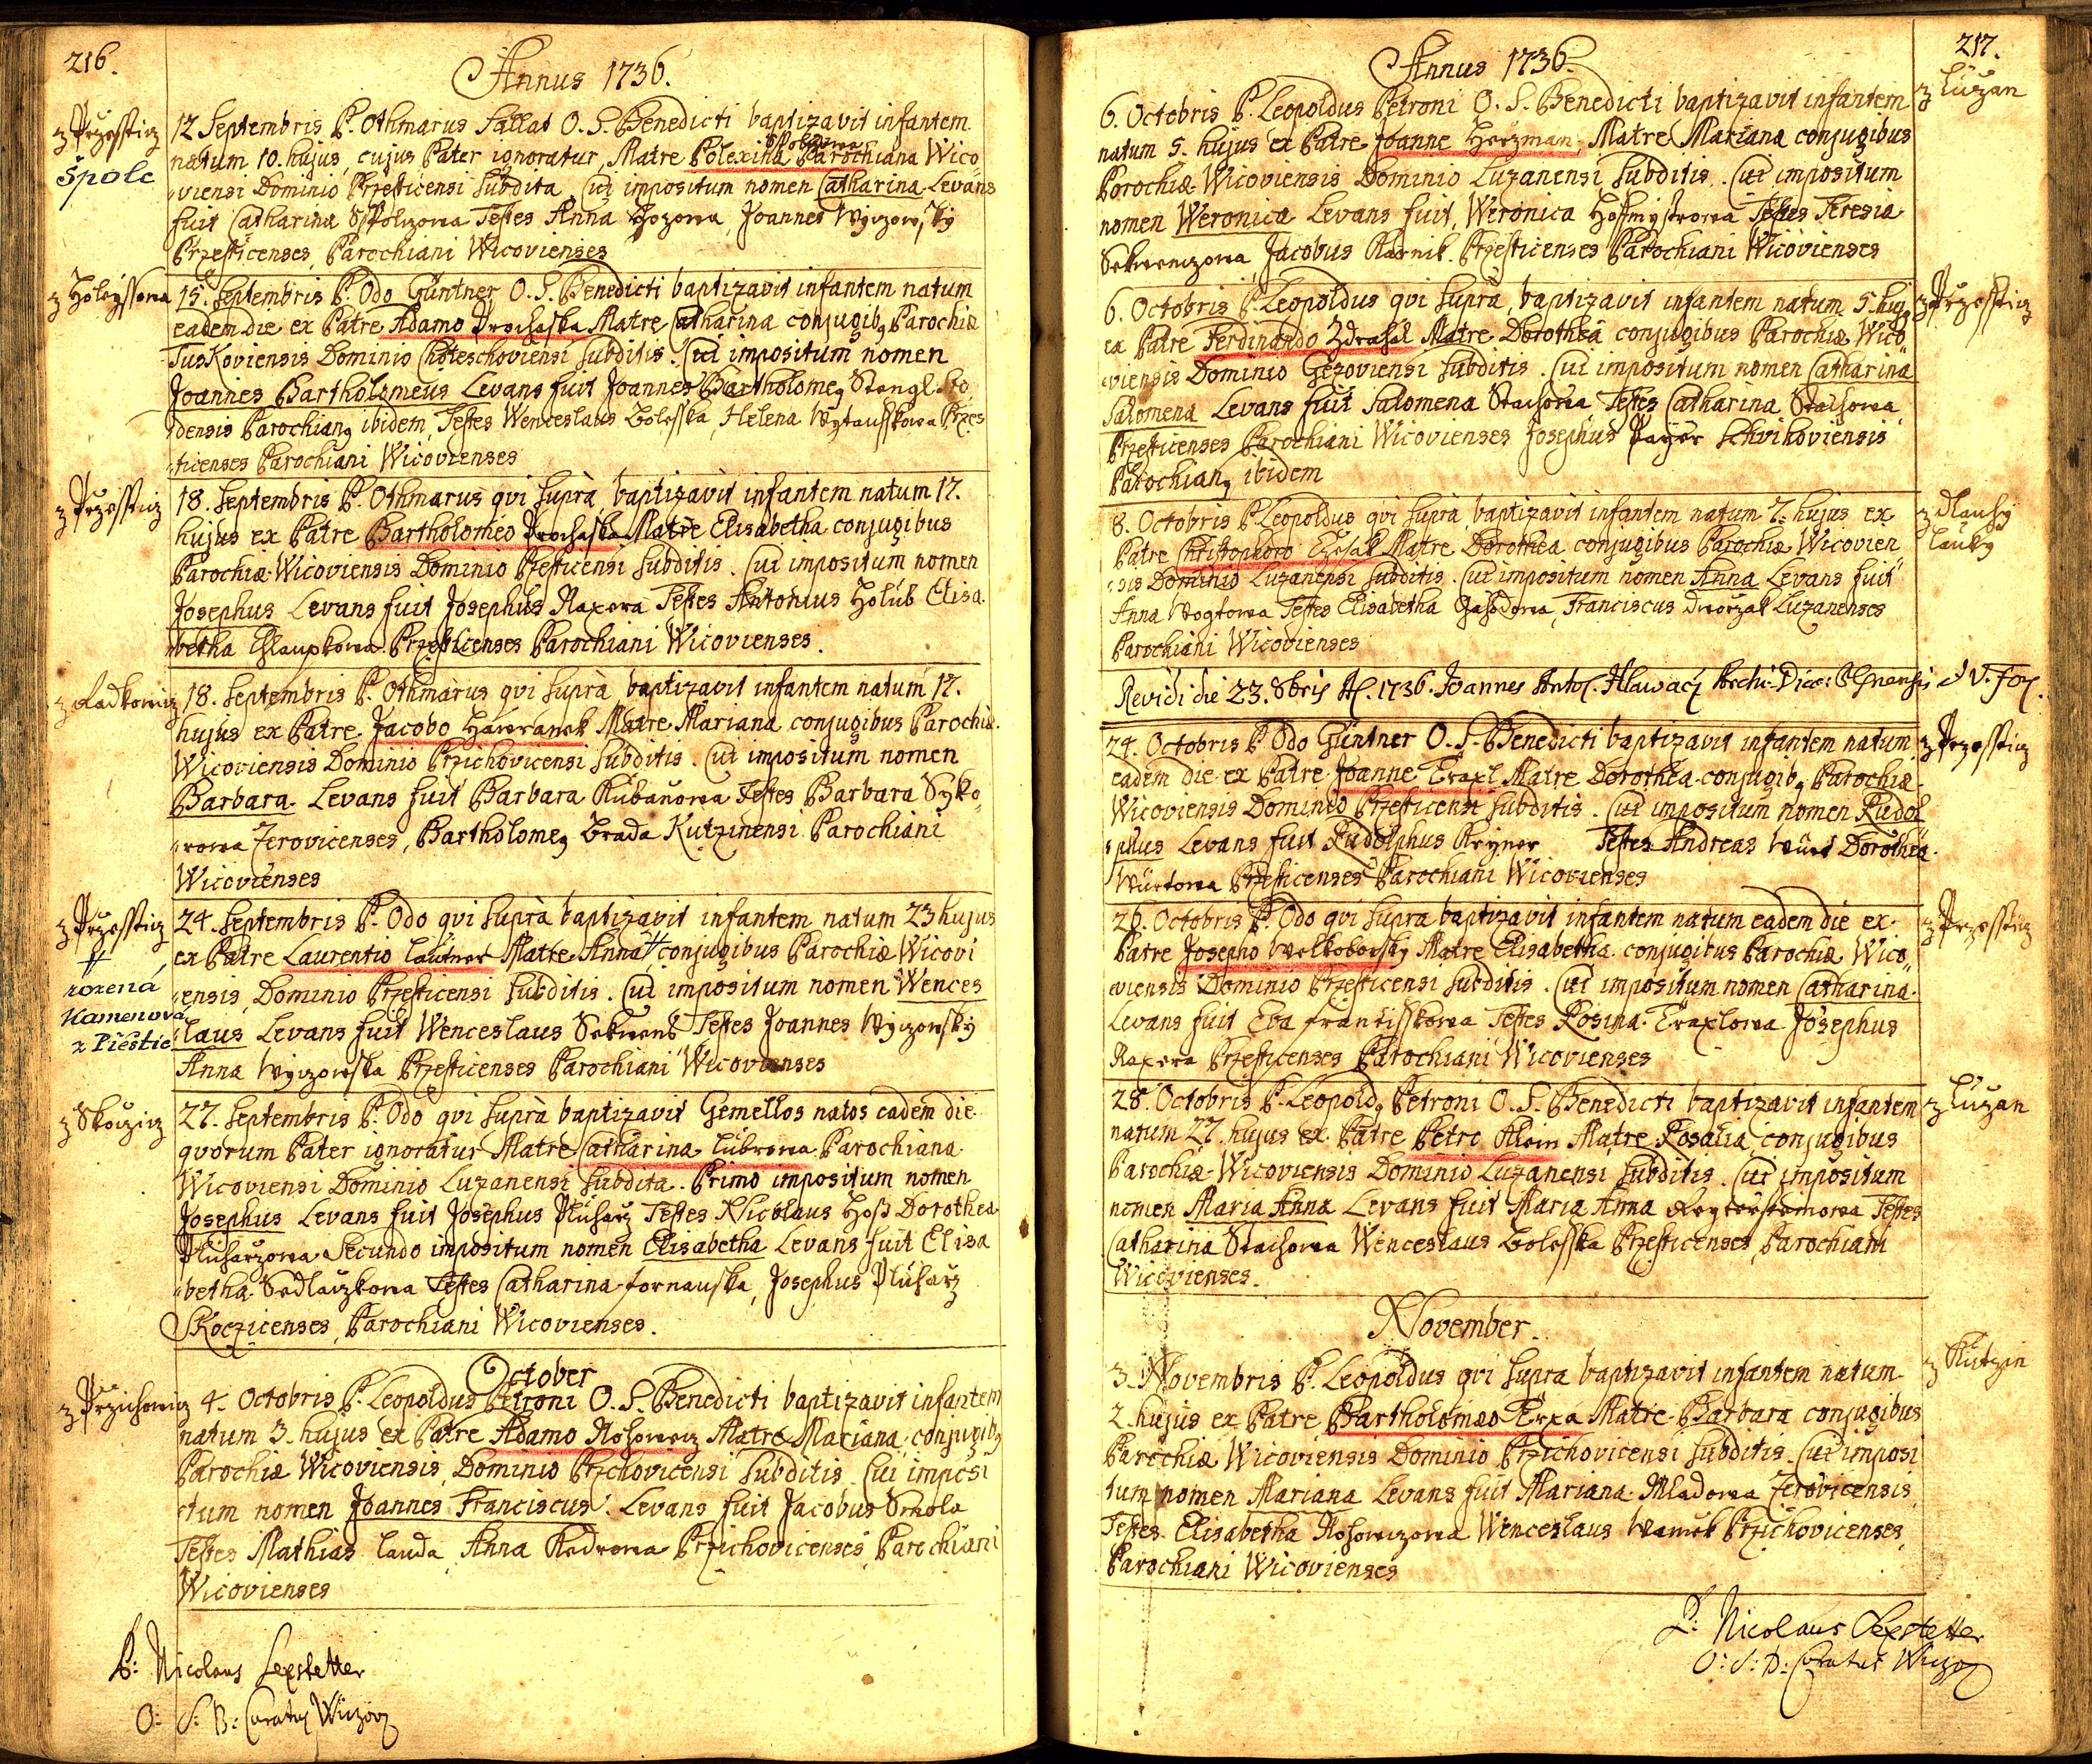 216.
Annus 1736.
z Przesstiz
Špolc
12 Septembris P. Othmarus Sallat O. S. Benedicti baptizavit infantem
natum 10. hujus, cujus Pater ignoratur, Matre Polexina Parochiana Wico
viensi Dominio Przesticensi subdita. Cui impositum nomen Catharina Levans
fuit Catharina Testes Anna Joannes
Przesticenses, Parochiani Wicovienses
15. Septembris P. Odo Güntner O. S. Benedicti baptizavit infantem natum
eadem die ex Patre Adamo Prochaska Matre Catharina conjugibq Parochiæ
TusKoviensis Dominio Choteschoviensi subditis. Cui impositum nomen
Joannes Bartholomeus Levans fuit Joannes Bartholomeq Stengl
densis Parochianq ibidem, Testes Wenceslaus Bolesska, Helena Przes
ticenses Parochiani Wicovienses
z Przesstiz
18. Septembris P. Othmarus qvi suprà baptizavit infantem natum 17.
hujus ex Patre Bartholomeo Prochaska Matre Elisabetha conjugibus
Parochiæ Wicoviensis Dominio Przesticensi subditis. Cui impositum nomen
Josephus Levans fuit Josephus Raxera Testes Antonius Holub Elisa
betha Chlaupkowa Przesticenses Parochiani Wicovienses.
z Radkowiz
18. Septembris P. Othmarus qvi suprà baptizavit infantem natum 17.
hujus ex Patre Jacobo Hawranek Matre Mariana conjugibus Parochiæ
Wicoviensis Dominio Przichovicensi subditis. Cui impositum nomen
Barbara. Levans fuit Barbara Kubanowa Testes Barbara Syko
rowa Zerovicenses, Bartholomeq Brada Kutzinensi Parochiani
Wicovienses
z Przesstiz
rozená
Kamenová
z Přeštic
24. Septembris P. Odo qvi suprà baptizavit infantem natum 23 hujus
ex Patre Laurentio Lautner Matre Anna conjugibus Parochiæ Wicovi
ensis Dominio Przesticensi subditis. Cui impositum nomen Wences
laus Levans fuit Wenceslaus Sekwens Testes Joannes Wyczowsky
Anna Wyczowska Przesticenses Parochiani Wicovienses
z Skoziz
27. Septembris P. Odo qvi suprà baptizavit Gemellos natos eadem die
qvorum Pater ignoratur Matre Catharina Lubrowa Parochiana
Wicoviensi Dominio Luzanensi subdita. Primo impositum nomen
Josephus Levans fuit Josephus Pluharz Testes Nicolaus Hoß Dorothea
Pluharzowa Secundo impositum nomen Elisabetha Levans fuit Elisa
betha Sedlaczkowa Testes Catharina Josephus Pluharz
Skoczicenses, Parochiani Wicovienses.
October
z Przichowiz
4. Octobris P. Leopoldus Petroni O. S. Benedicti baptizavit infantem
natum 3. hujus ex Patre Adamo Nohowecz Matre Mariana conjugibq
Parochiæ Wicoviensis, Dominio Przchovicensi subditis. Cui imposi
tum nomen Joannes Franciscus. Levans fuit Jacobus Smola
Testes Mathias Lauda Anna Kedrowa Przichovicenses Parochiani
Wicovienses
P: Nicolaus Sexstetter
O: S: B: Curatq Wiczovz
217.
Annus 1736.
z Luzan
6. Octobris P. Leopoldus Petroni O. S. Benedicti baptizavit infantem
natum 5. hujus ex Patre Joanne Herzman, Matre Mariana conjugibus
Parochiæ Wicoviensis Dominio Luzanensi subditis. Cui impositum
nomen Weronica Levans fuit, Weronica Hoffmystrowa Testes Teresia
Sekwenczowa, Jacobus Przesticenses Parochiani Wicovienses
z Przesstiz
6. Octobris P. Leopoldus qvi suprà, baptizavit infantem natum 5. hujq
ex Patre Ferdinando Zdrahal Matre Dorothea conjugibus Parochiæ Wico
viensis Dominio Gezoviensi subditis. Cui impositum nomen Catharina
Salomena Levans fuit Salomena Stachowa Testes Catharina Stachowa
Przesticenses Parochiani Wicovienses Josephus Payer Schvihoviensis
Parochianq ibidem
z Dlauhy
Lauky
8. Octobris P. Leopoldus qvi suprà, baptizavit infantem natum 7. hujus ex
Patre Christophoro Matre Dorothea conjugibus Parochiæ Wicovien
sis Dominio Luzanensi subditis. Cui impositum nomen Anna Levans fuit
Anna Wogtowa Testes Elisabetha Franciscus Dworzak Luzanenses
Parochiani Wicovienses
Revidi die 23. 8bris A. 1736. Joannes Anto. Hlawacz
z Przesstiz
24. Octobris P. Odo Güntner O. S. Benedicti baptizavit infantem natum
eadem die ex Patre Joanne Traxl Matre Dorothea conjugibq Parochiæ
Wicoviensis Dominio Przesticensi subditis. Cui impositum nomen Rudol
phus Levans fuit Rudolphus Testes Andreas Würt Dorothea
Würtowa Przesticenses Parochiani Wicovienses
z Przesstiz
26. Octobris P. Odo qvi supra baptizavit infantem natum eadem die ex
Patre Josepho Welkoborsky Matre Elisabetha conjugibus Parochiæ Wico
viensis Dominio Przesticensi subditis. Cui impositum nomen Catharina.
Levans fuit Eva Frantisskowa Testes Rosina Traxlowa Josephus
Raxera Przesticenses Parochiani Wicovienses
z Luzan
28. Octobris P. Leopoldq Petroni O. S. Benedicti baptizavit infantem
natum 27. hujus ex Patre Petro Klein Matre Rosalia conjugibus
Parochiæ Wicoviensis Dominio Luzanensi subditis. Cui impositum
nomen Maria Anna Levans fuit Maria Anna Testes
Catharina Stachowa Wenceslaus Bolesska Przesticenses, Parochiani
Wicovienses.
November.
z Kutzin
3. Novembris P. Leopoldus qvi supra baptizavit infantem natum
2. hujus ex Patre Bartholomæo Matre Barbara conjugibus
Parochiæ Wicoviensis Dominio Przichovicensi subditis. Cui imposi
tum nomen Mariana Levans fuit Mariana Mladowa Zerovicensis
Testes Elisabetha Nohowczowa Wenceslaus Przichovicenses,
Parochiani Wicovienses
P: Nicolaus Sexstetter